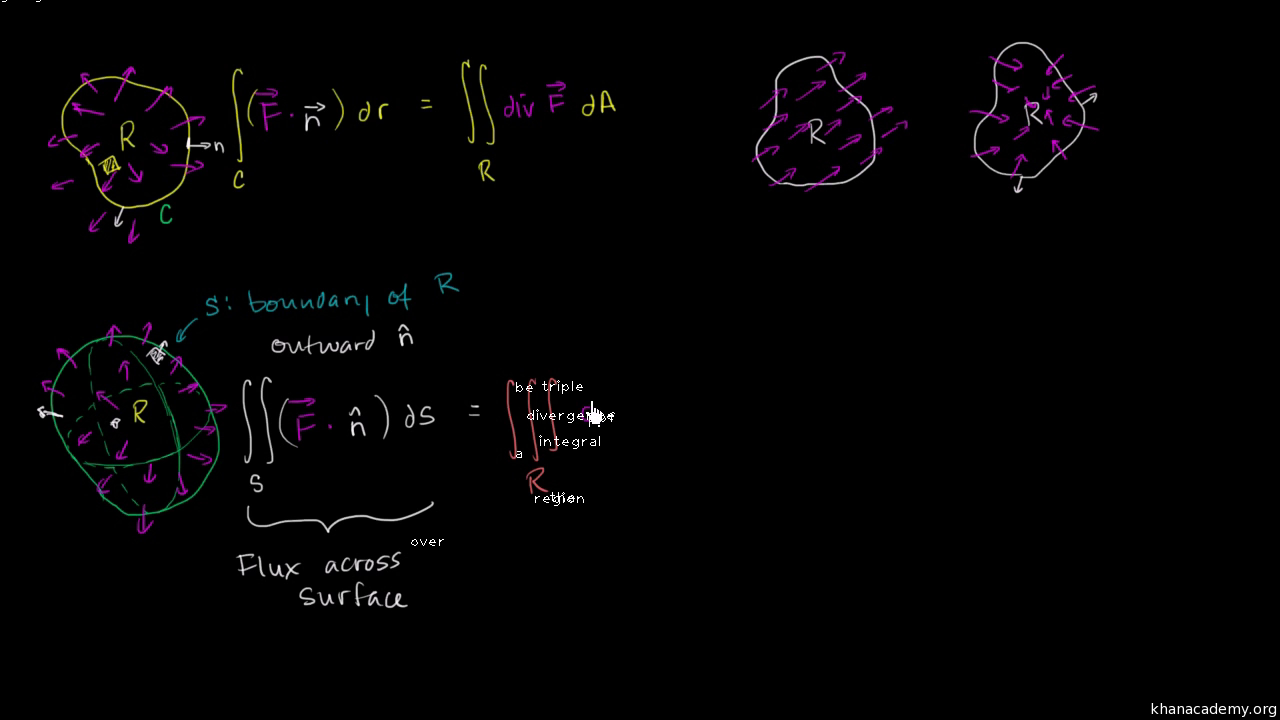 R
n
C
∫ ( F⃗ · n⃗ ) dr = ∬ div F⃗ dA
C
R
R
R
S: boundary of R
outward n̂
R
∬ ( F⃗ · n̂ ) dS = ∭
S
R
be triple
divergence of
integral
a
region
over
Flux across
surface
khanacademy.org